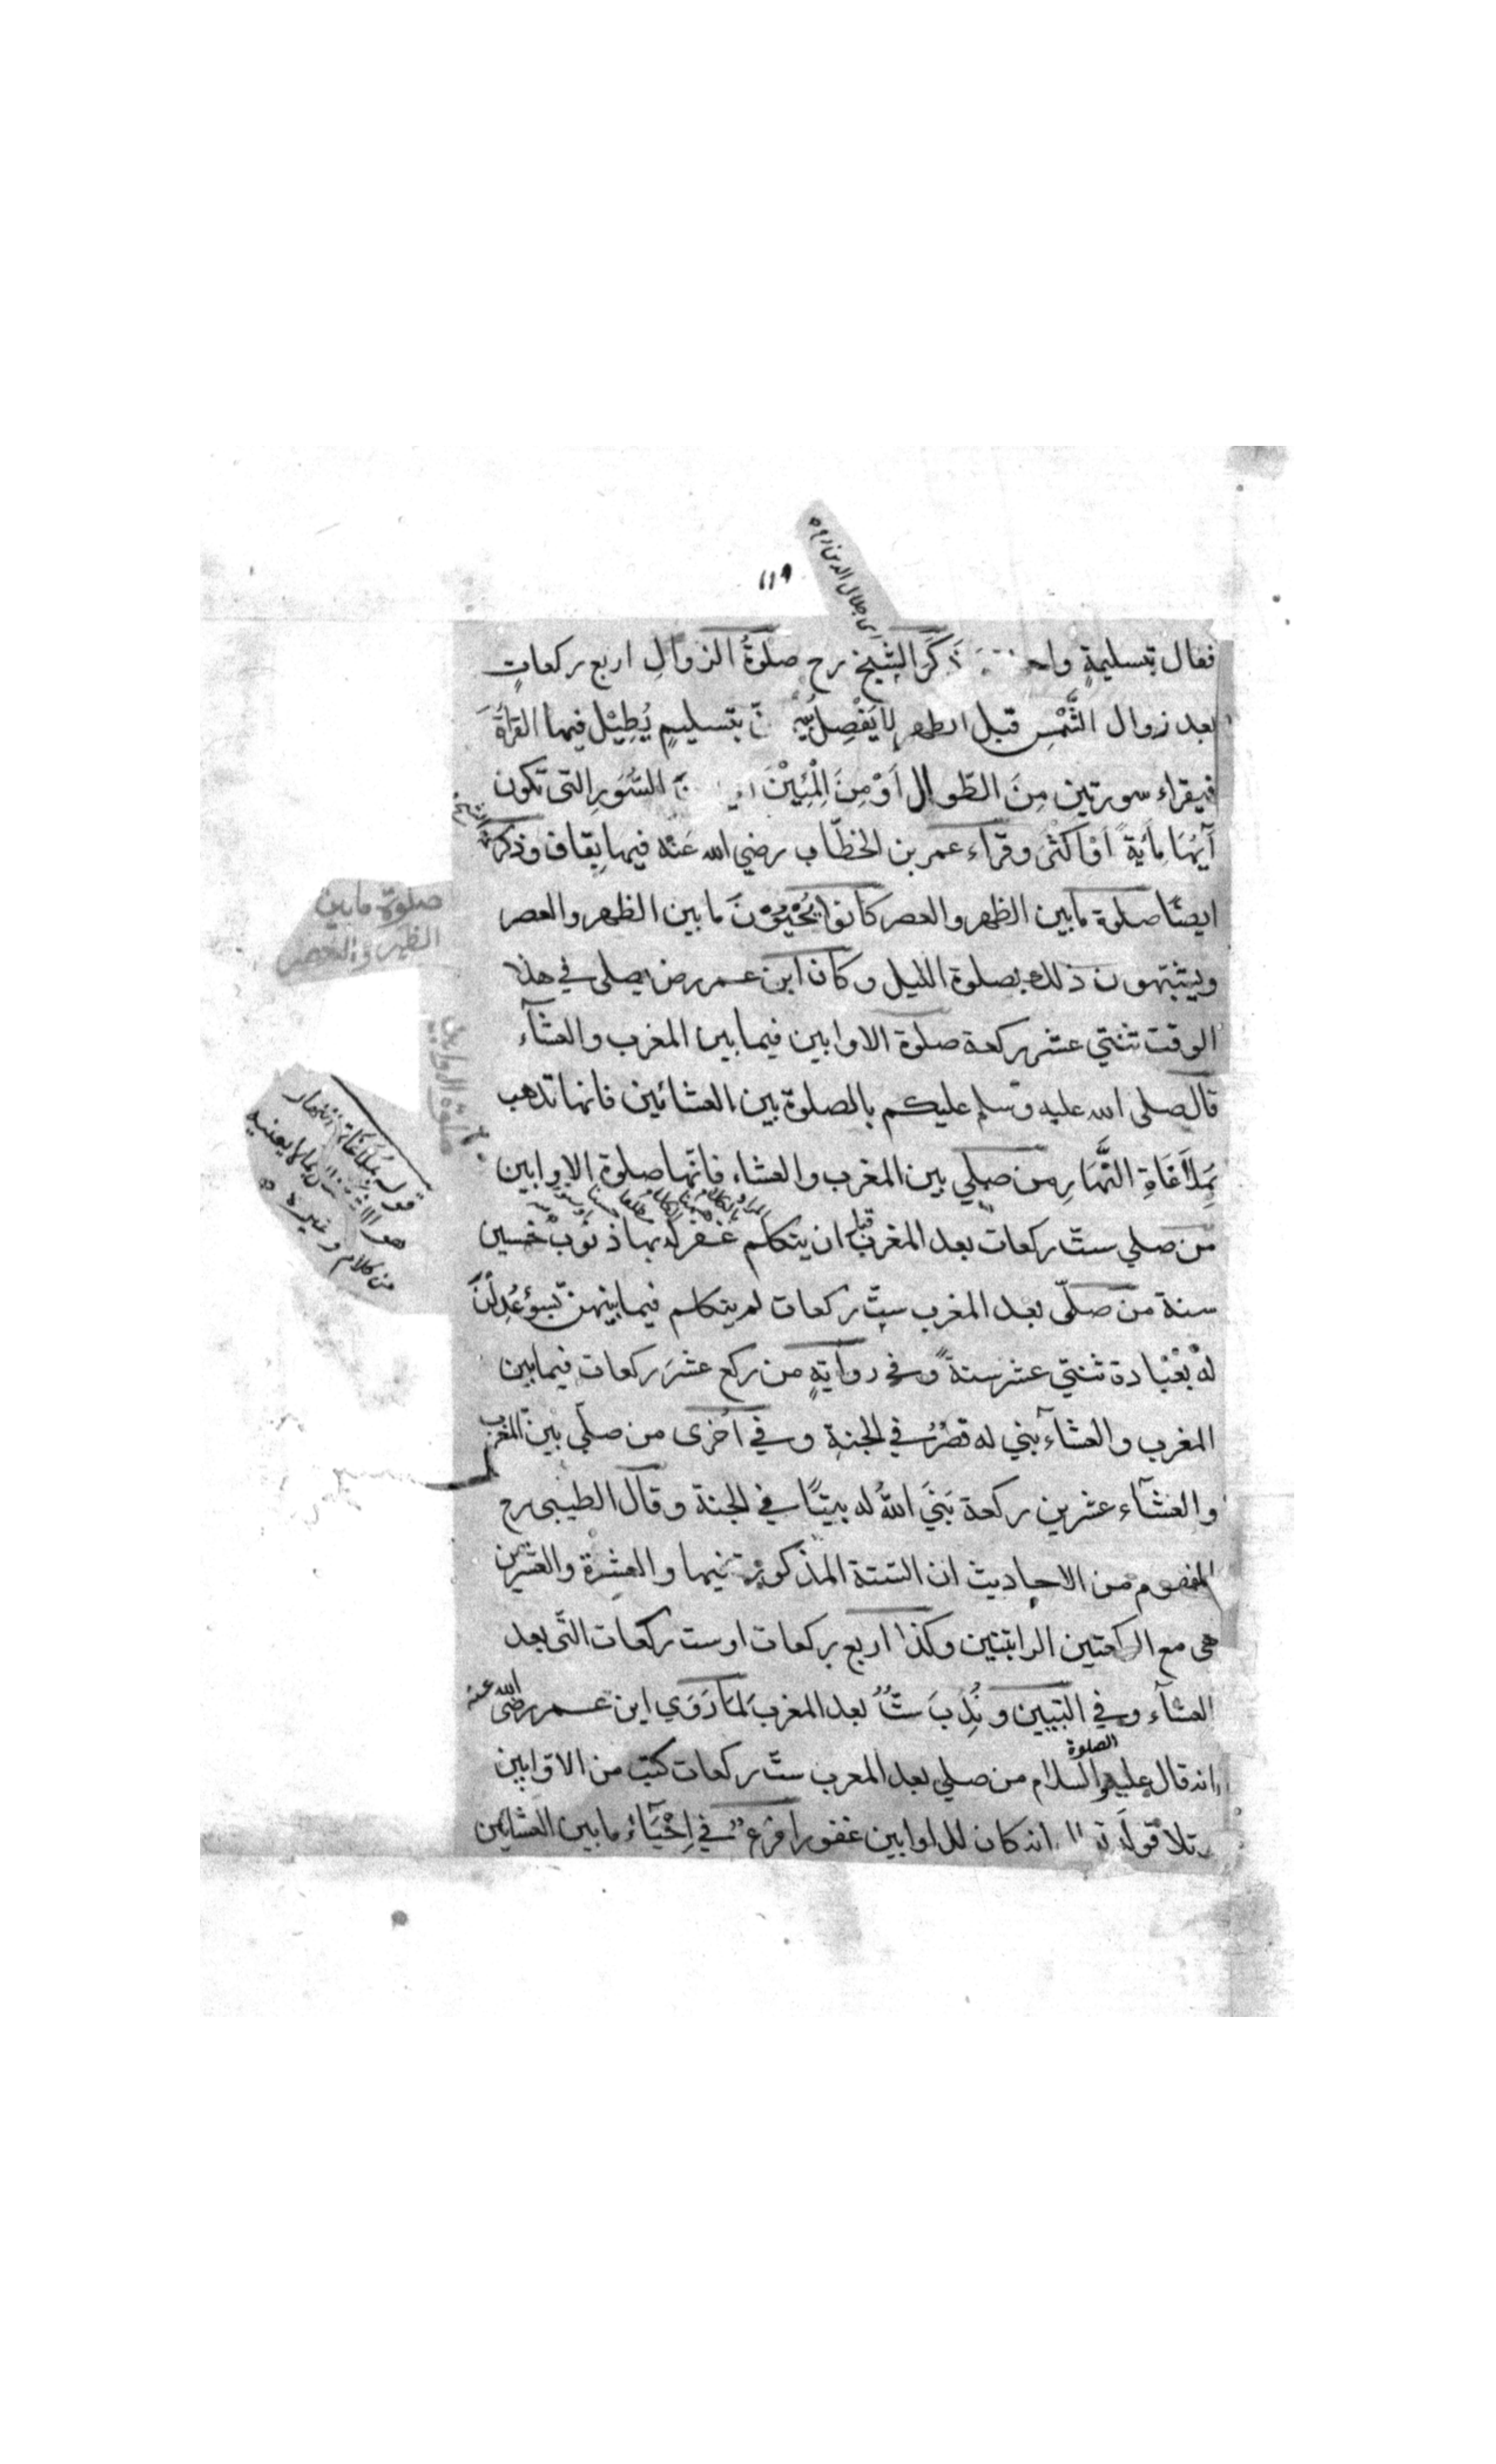 ١١٩
اى جلال الدين
فقال بتسليمةٍ ذَكَرَ الشيخ رح صلوةُ الزوالِ اربع ركعاتٍ
بعد زوال الشَّمْسِ قبل الظهر لا يَفْصِلُ بتسليمٍ يُطِيْلُ فيها القرأةَ
فيقراء سورتين مِنَ الطّوال اَوْ مِنَ الْمِئِيْنَ السُّوَرِ التى تكون
آيُهَا مِأيَةً اَوْ اَكْثَرَ وقراء عمر بن الخطّاب رضي الله عَنْه فيها بِقاف وذكر الشيخ
ايضًا صلوة ما بين الظهر والعصر كانوا يُحْيُوْنَ ما بين الظهر والعصر
صلوة مابين
الظهر والعصر
ويشبّهون ذلك بصلوة الليل وكان ابن عمر رض يصلى في هذا
الوقت ثنتي عشر ركعة صلوة الاوابين فيما بين المغرب والعشآء
صلوة الاوابين
قال صلى الله عليه وسلم عليكم بالصلوة بين العشائين فانها تذهب
بِمَلاَغَاةِ النَّهَارِ من صلي بين المغرب والعشاء فانّها صلوة الاوابين
قوله بمُلاَغَاة النهار
من كلام وغيره
من صلي ستّ ركعات بعد المغرب قبل ان يتكلم غفر له بها ذنوب خمسين
سنة من صلّى بعد المغرب ستّ ركعات لم يتكلم فيما بينهن بسوءٍ عُدِلْنَ
لهْ بعْبادة ثنتي عشر سنةً وفي روايةٍ من ركع عشرَ ركعات فيما بين
المغرب والعشآء بني له قصْرٌ في الجنةِ وفي اُخرى من صلّي بين المغرب
والعشآء عشرين ركعة بَنَي اللهُ له بيتًا في الجنة وقال الطيبى رح
المفهوم من الاحاديث ان الستة المذكورة فيها والعشرة والعشرين
هى مع الركعتين الراتبتين وكذا اربع ركعات او ست ركعات التى بعد
العشآء وفي التبيين ونُدِبَ ستٌّ بعد المغرب لما رَوَي ابن عمر رضى الله عنه
انه قال عليه الصلوة والسلام من صلي بعد المغرب ستّ ركعات كتب من الاوّابين
وتلا قولَه انه كان للاوابين غفورا فرع في اِحْيَآء ما بين العشائين